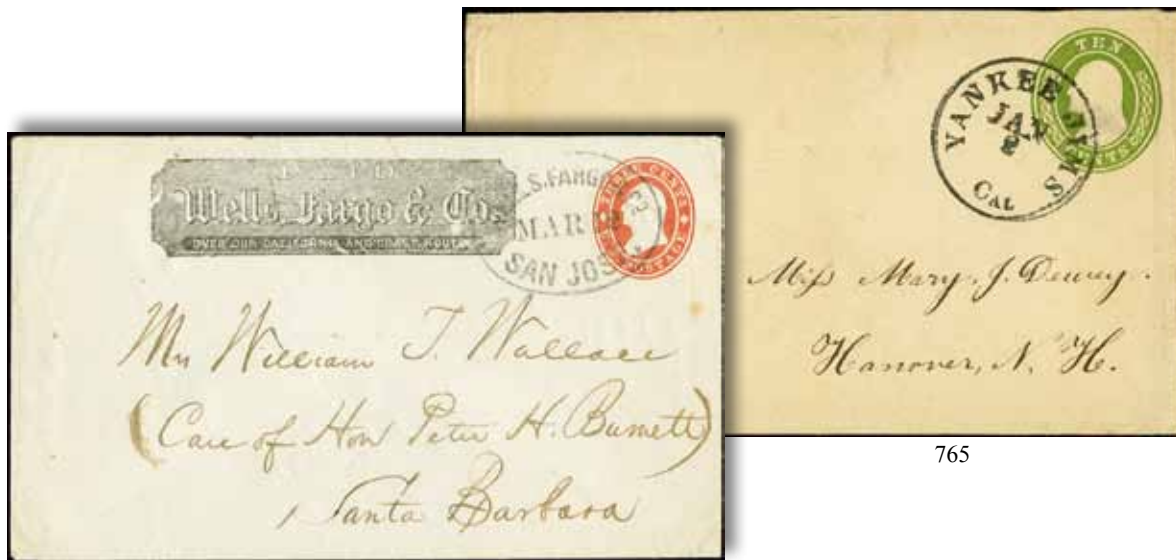 PAID
Wells, Fargo & Co.
OVER OUR CALIFORNIA AND COAST ROUTES
S. FARGO
MAR 22
SAN JOS
THREE CENTS
U.S. POSTAGE
Mr William T. Wallace
(Care of Hon Peter H. Burnett)
Santa Barbara
YANKEE JIMS
JAN
Cal
TEN
CENTS
Miss Mary. J. Dewey.
Hanover, N. H.
765